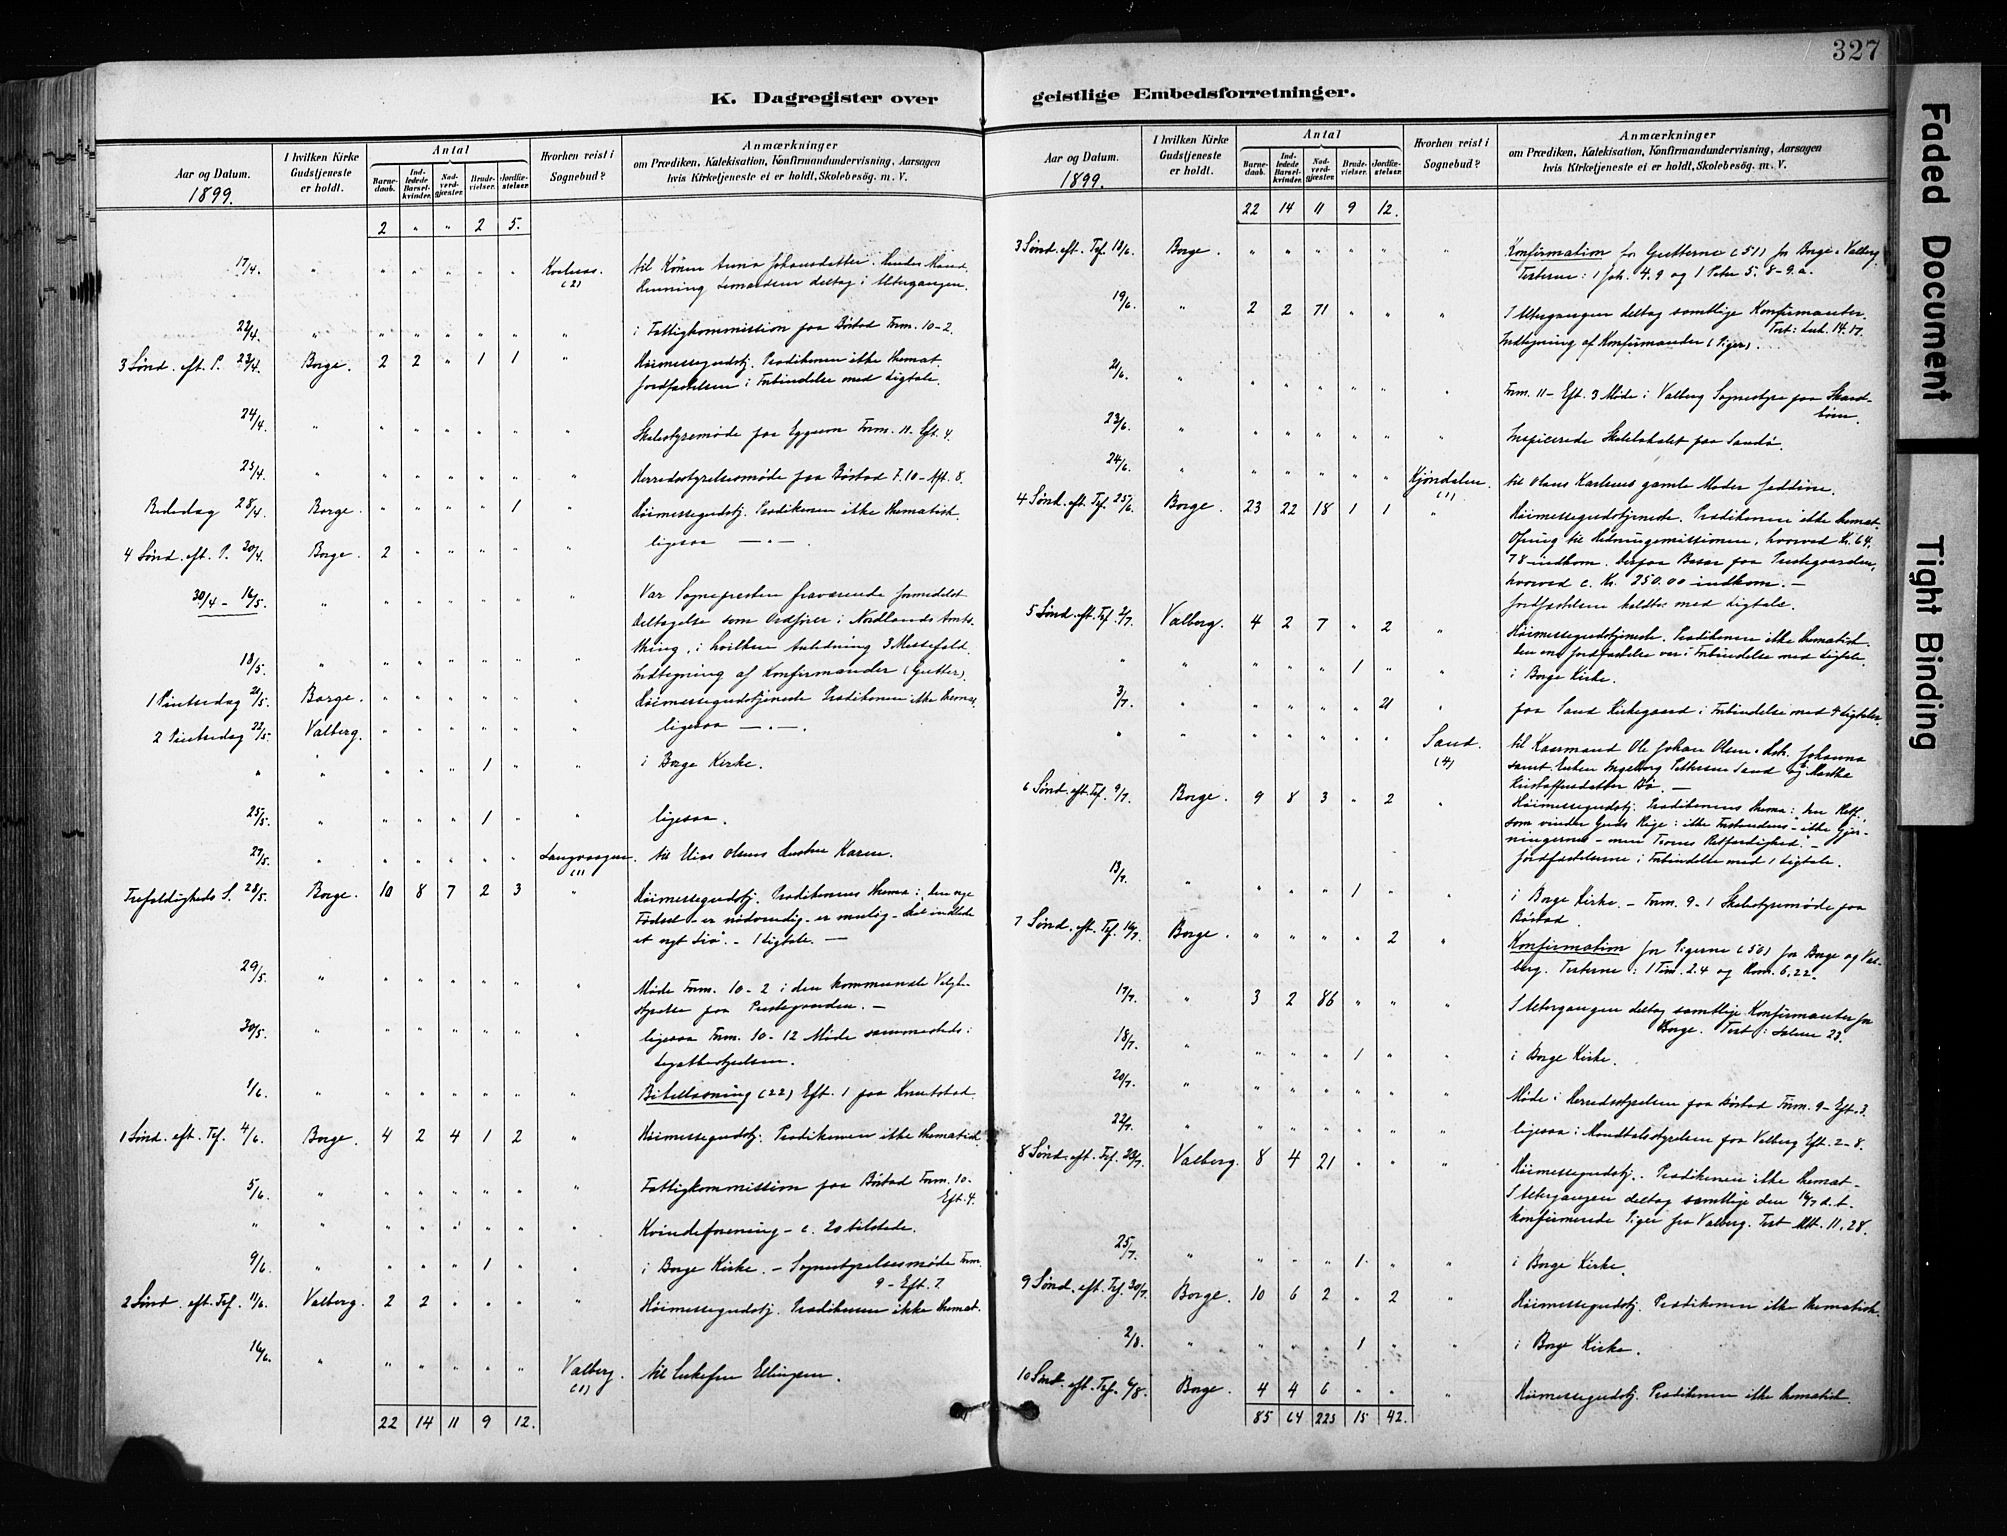 327
K. Dagregister over geistlige Embedsforretninger.
Faded Document
Tight Binding
Aar og Datum.
1899.
I hvilken Kirke Gudstjeneste er holdt.
Antal
Barnedaab.
Indledede Barselkvinder.
Nadverdgjæster.
Brudevielser.
Jordfæstelser.
Hvorhen reist i Sognebud?
Anmærkninger
om Prædiken, Katekisation, Konfirmandundervisning, Aarsagen
hvis Kirketjeneste ei er holdt, Skolebesøg. m. V.
2 " " 2 5.
17/4. " " " " " " (2) til Konen Anna Johansdatter. Hendes Mand
Henning deltog i Altergangen.
22/4. " " " " " " " i Fattigkommission paa Bøstad Form. 10-2.
3 Sønd. eft. P. 23/4. Borge. 2 2 " 1 1 " Høimessegudstj. Prædikenen ikke themat.
Jordfæstelsen i Forbindelse med Ligtale.
24/4. " " " " " " " Skolestyremøde paa Eggum Form. 11 - Eft. 4.
25/4. " " " " " " " Herredsstyrelsesmøde paa Bøstad F. 10 - Aft. 8.
Bededag 28/4. Borge. " " " " 1 " Høimessegudstj. Prædikenen ikke thematisk.
4 Sønd. eft. P. 30/4. Borge. 2 " " " " " ligesaa — " — .
30/4 - 16/5. " " " " " " " Var Sognepresten fraværende formedelst
Deltagelse som Ordfører i Nordlands Amts-
thing, i hvilken Anledning 3 Messefald.
18/5. " " " " " " " Indtegning af Konfirmander (Gutter).
1 Pintsedag 21/5. Borge. " " " " " " Høimessegudstjeneste Prædikenen ikke themat.
2 Pintsedag 22/5. Valberg. " " " " " " ligesaa — " — .
" " " " " 1 " " i Borge Kirke.
25/5. " " " " 1 " " ligesaa.
27/5. " " " " " " Langvaagen. (1) til Elias Olsens Hustru Karen.
Trefoldigheds S. 28/5. Borge. 10 8 7 2 3 " Høimessegudstj. Prædikenens thema: "Den nye
Fødsel - er nødvendig - er mulig - det indlede
et nyt Liv". - 1 Ligtale. —
29/5. " " " " " " " Møde Form. 10 - 2 i den kommunale Valg-
styrelse paa Prestegaarden. —
30/5. " " " " " " " ligesaa Form. 10 - 12 Møde sammesteds i
Legatbestyrelsen.
1/6. " " " " " " " Bibellæsning (22) Eft. 1 paa Knutstad.
1 Sønd. eft. Tref. 4/6. Borge. 4 2 4 1 2 " Høimessegudstj. Prædikenen ikke thematisk.
5/6. " " " " " " " Fattigkommission paa Bøstad Form. 10 -
Eft. 4.
" " " " " " " " Kvindeforening - c. 20 tilstede.
9/6. " " " " 1 " " i Borge Kirke. - Sognestyrelsesmøde Form.
9 - Eft. 7.
2 Sønd. eft. Tref. 11/6. Valberg. 2 2 " " " " Høimessegudstj. Prædikenen ikke themat.
16/6. " " " " " " Valberg. (1) til Ellingsen.
22 14 11 9 12.
Aar og Datum.
1899.
I hvilken Kirke Gudstjeneste er holdt.
Antal
Barnedaab.
Indledede Barselkvinder.
Nadverdgjæster.
Brudevielser.
Jordfæstelser.
Hvorhen reist i Sognebud?
Anmærkninger
om Prædiken, Katekisation, Konfirmandundervisning, Aarsagen
hvis Kirketjeneste ei er holdt, Skolebesøg. m. V.
22 14 11 9 12.
3 Sønd. eft. Tref. 18/6. Borge. " " " " " " Konfirmation for Gutterne (51) for Borge & Valberg.
Texterne: 1 Joh. 4.9 og 1 Peter 5. 8-9.a.
19/6. " 2 2 71 " " " I Altergangen deltog samtlige Konfirmanter.
Text: Luk. 14.17.
Indtegning af Konfirmander (Piger).
21/6. " " " " " " " Form. 11 - Eft. 3 Møde i Valberg Sognestyre paa Skand-
23/6. " " " " " " " Inspicerede Skolelokalet paa Sandø.
24/6. " " " " " " Kjøndalen. (1) til Olaus Karlsens gamle Moder
4 Sønd. eft. Tref. 25/6. Borge. 23 22 18 1 1 " Høimessegudstjeneste. Prædikenen ikke themat.
Ofring til Hedningemissionen, hvorved Kr. 64.
78 indkom. Derpaa Basar paa Prestegaarden,
hvorved c. Kr. 250.00 indkom. —
Jordfæstelsen holdtes med Ligtale.
5 Sønd. eft. Tref. 2/7. Valberg. 4 2 7 " 2 " Høimessegudstjeneste. Prædikenen ikke thematisk.
Den ene Jordfæstelse var i Forbindelse med Ligtale.
" " " " " 1 " " i Borge Kirke.
3/7. " " " " " 21 " paa Sand Kirkegaard i Forbindelse med 4 Ligtaler.
" " " " " " " Sand. (4) til Kaarmand Ole Johan Olsen & Johanna
samt Enken Ingeborg Pettersen Sand og Marthe
Kristoffersdatter Bø. —
6 Sønd. eft. Tref. 9/7. Borge. 9 8 3 " 2 " Høimessegudstj. Prædikenens thema: Den Retf.,
som vinder Guds Rige: ikke - ikke Gjer-
ningernes - men Troens Retfærdighed". —
Jordfæstelserne i Forbindelse med 1 Ligtale.
13/7. " " " " 1 " " i Borge Kirke. - Form. 9 - 1 Skolestyremøde paa
Bøstad.
7 Sønd. eft. Tref. 16/7. Borge. " " " " 2 " Konfirmation for Pigerne (56) for Borge og Val-
berg. Texterne: 1 Tim. 2.4 og Rom. 6.22.
17/7. " 3 2 86 " " " I Altergangen deltog samtlige Konfirmanter for
Borge. Text: Salme 23.
18/7. " " " " 1 " " i Borge Kirke.
20/7. " " " " " " " Møde i Herredsstyrelsen paa Bøstad Form. 9 - Eft. 3.
22/7. " " " " " " " ligesaa i paa Valberg Eft. 2 - 8.
8 Sønd. eft. Tref. 23/7. Valberg. 8 4 21 " " " Høimessegudstj. Prædikenen ikke themat.
I Altergangen deltog samtlige den 16/7 d. A.
konfirmerede Piger fra Valberg. Text Mt. 11.28.
25/7. " " " " 1 " " i Borge Kirke.
9 Sønd. eft. Tref. 30/7. Borge. 10 6 2 " 2 " Høimessegudstj. Prædikenen ikke thematisk.
2/8. " " " " 1 " " i Borge Kirke.
10 Sønd. eft. Tref. 6/8. Borge. 4 4 6 " " " Høimessegudstj. Prædikenen ikke thematisk.
85 64 225 15 42.